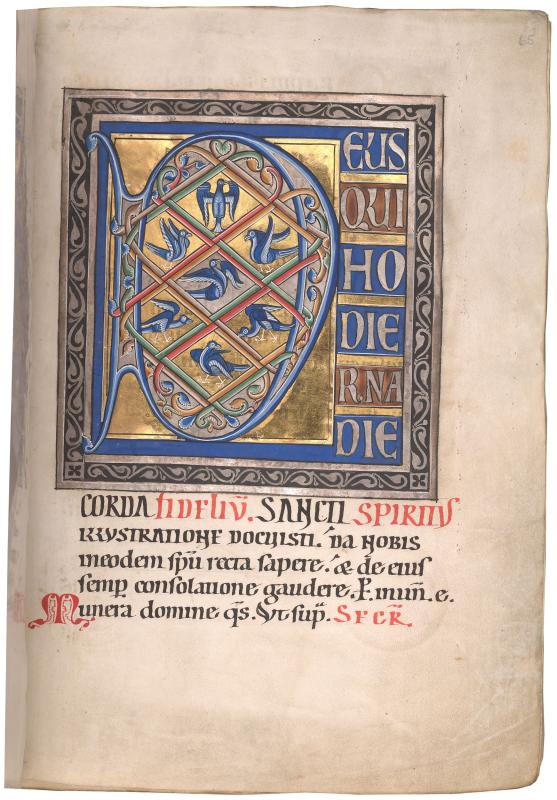 DEUS
QUI
HO
DIE
RNA
DIE
CORDA FIDELIŪ. SANCTI SPIRITUS
ILLUSTRATIONE DOCUISTI. DA NOBIS
ineodem sp̄u recta sapere. & de eius
semp̲ consolatione gaudere. P̲. mun̄. e.
Munera domine q̄s. Vt sup̄. SECR̄.